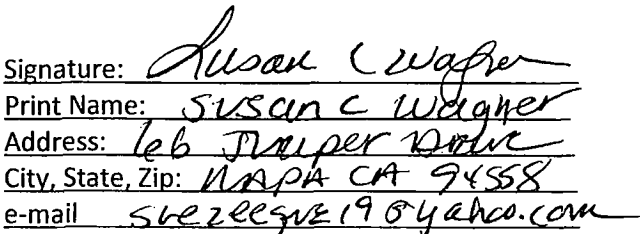 Signature: Susan C Wagner
Print Name: Susan C Wagner
Address: Juniper Drive
City, State, Zip: NAPA CA 94558
e-mail